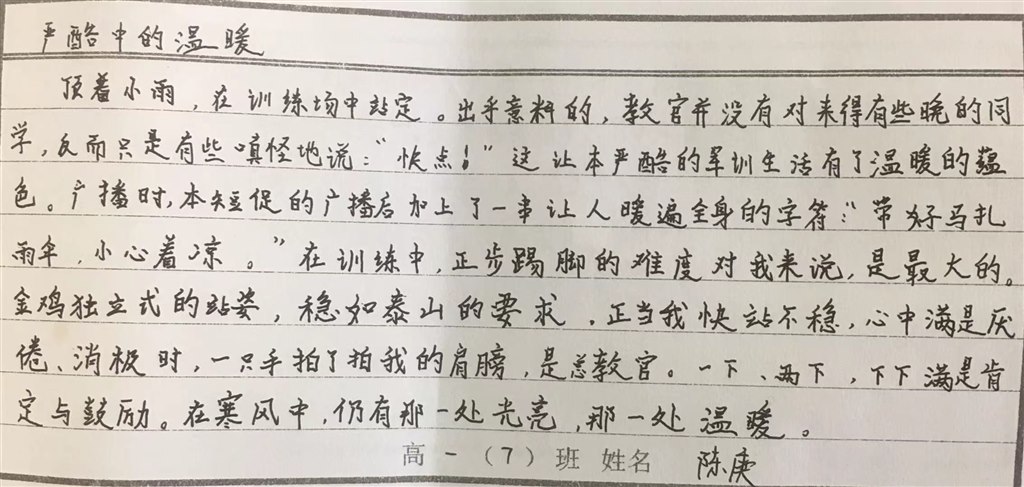 严酷中的温暖
顶着小雨，在训练场中站定。出乎意料的，教官并没有对来得有些晚的同
学，反而只是有些嗔怪地说：“快点！”这让本严酷的军训生活有了温暖的蕴
色。广播时，本短促的广播后加上了一串让人暖遍全身的字符：“带好马扎
雨伞，小心着凉。”在训练中，正步踢脚的难度对我来说，是最大的。
金鸡独立式的站姿，稳如泰山的要求，正当我快站不稳，心中满是厌
倦、消极时，一只手拍了拍我的肩膀，是总教官。一下、两下，下下满是肯
定与鼓励。在寒风中，仍有那一处光亮，那一处温暖。
高一（7）班 姓名 陈庚